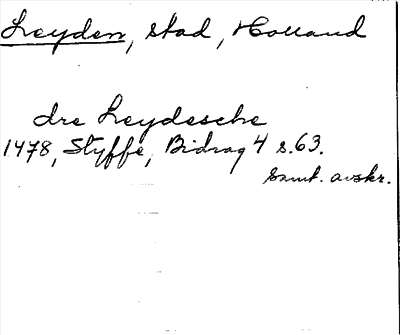 Leyden, stad, Holland
dre Leydesche
1478, Styffe, Bidrag 4 s.63.
Samt. avskr.